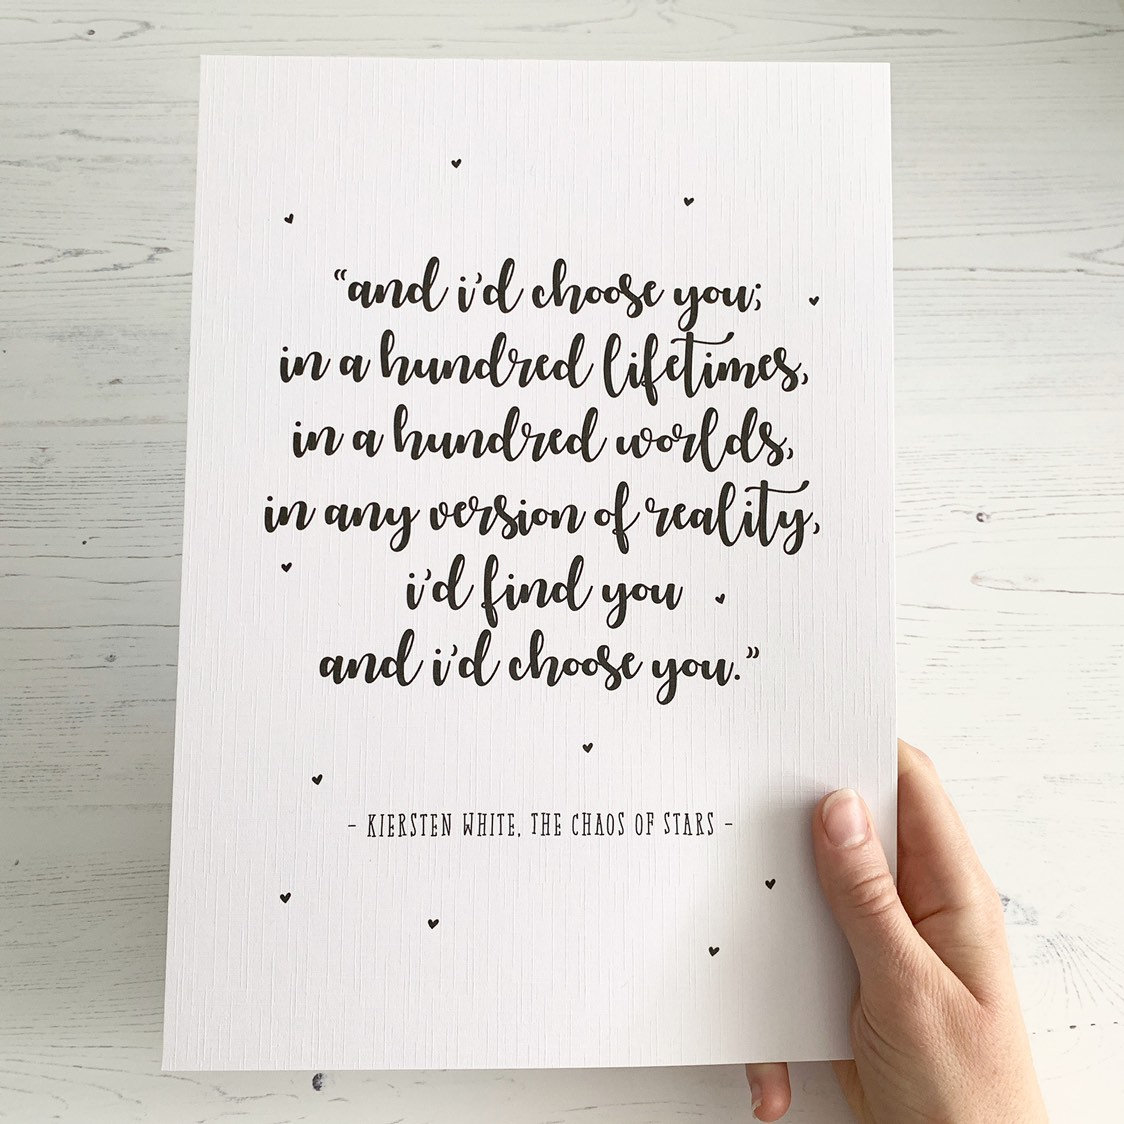 “and i’d choose you;
in a hundred lifetimes,
in a hundred worlds,
in any version of reality,
i’d find you
and i’d choose you.”
- KIERSTEN WHITE, THE CHAOS OF STARS -